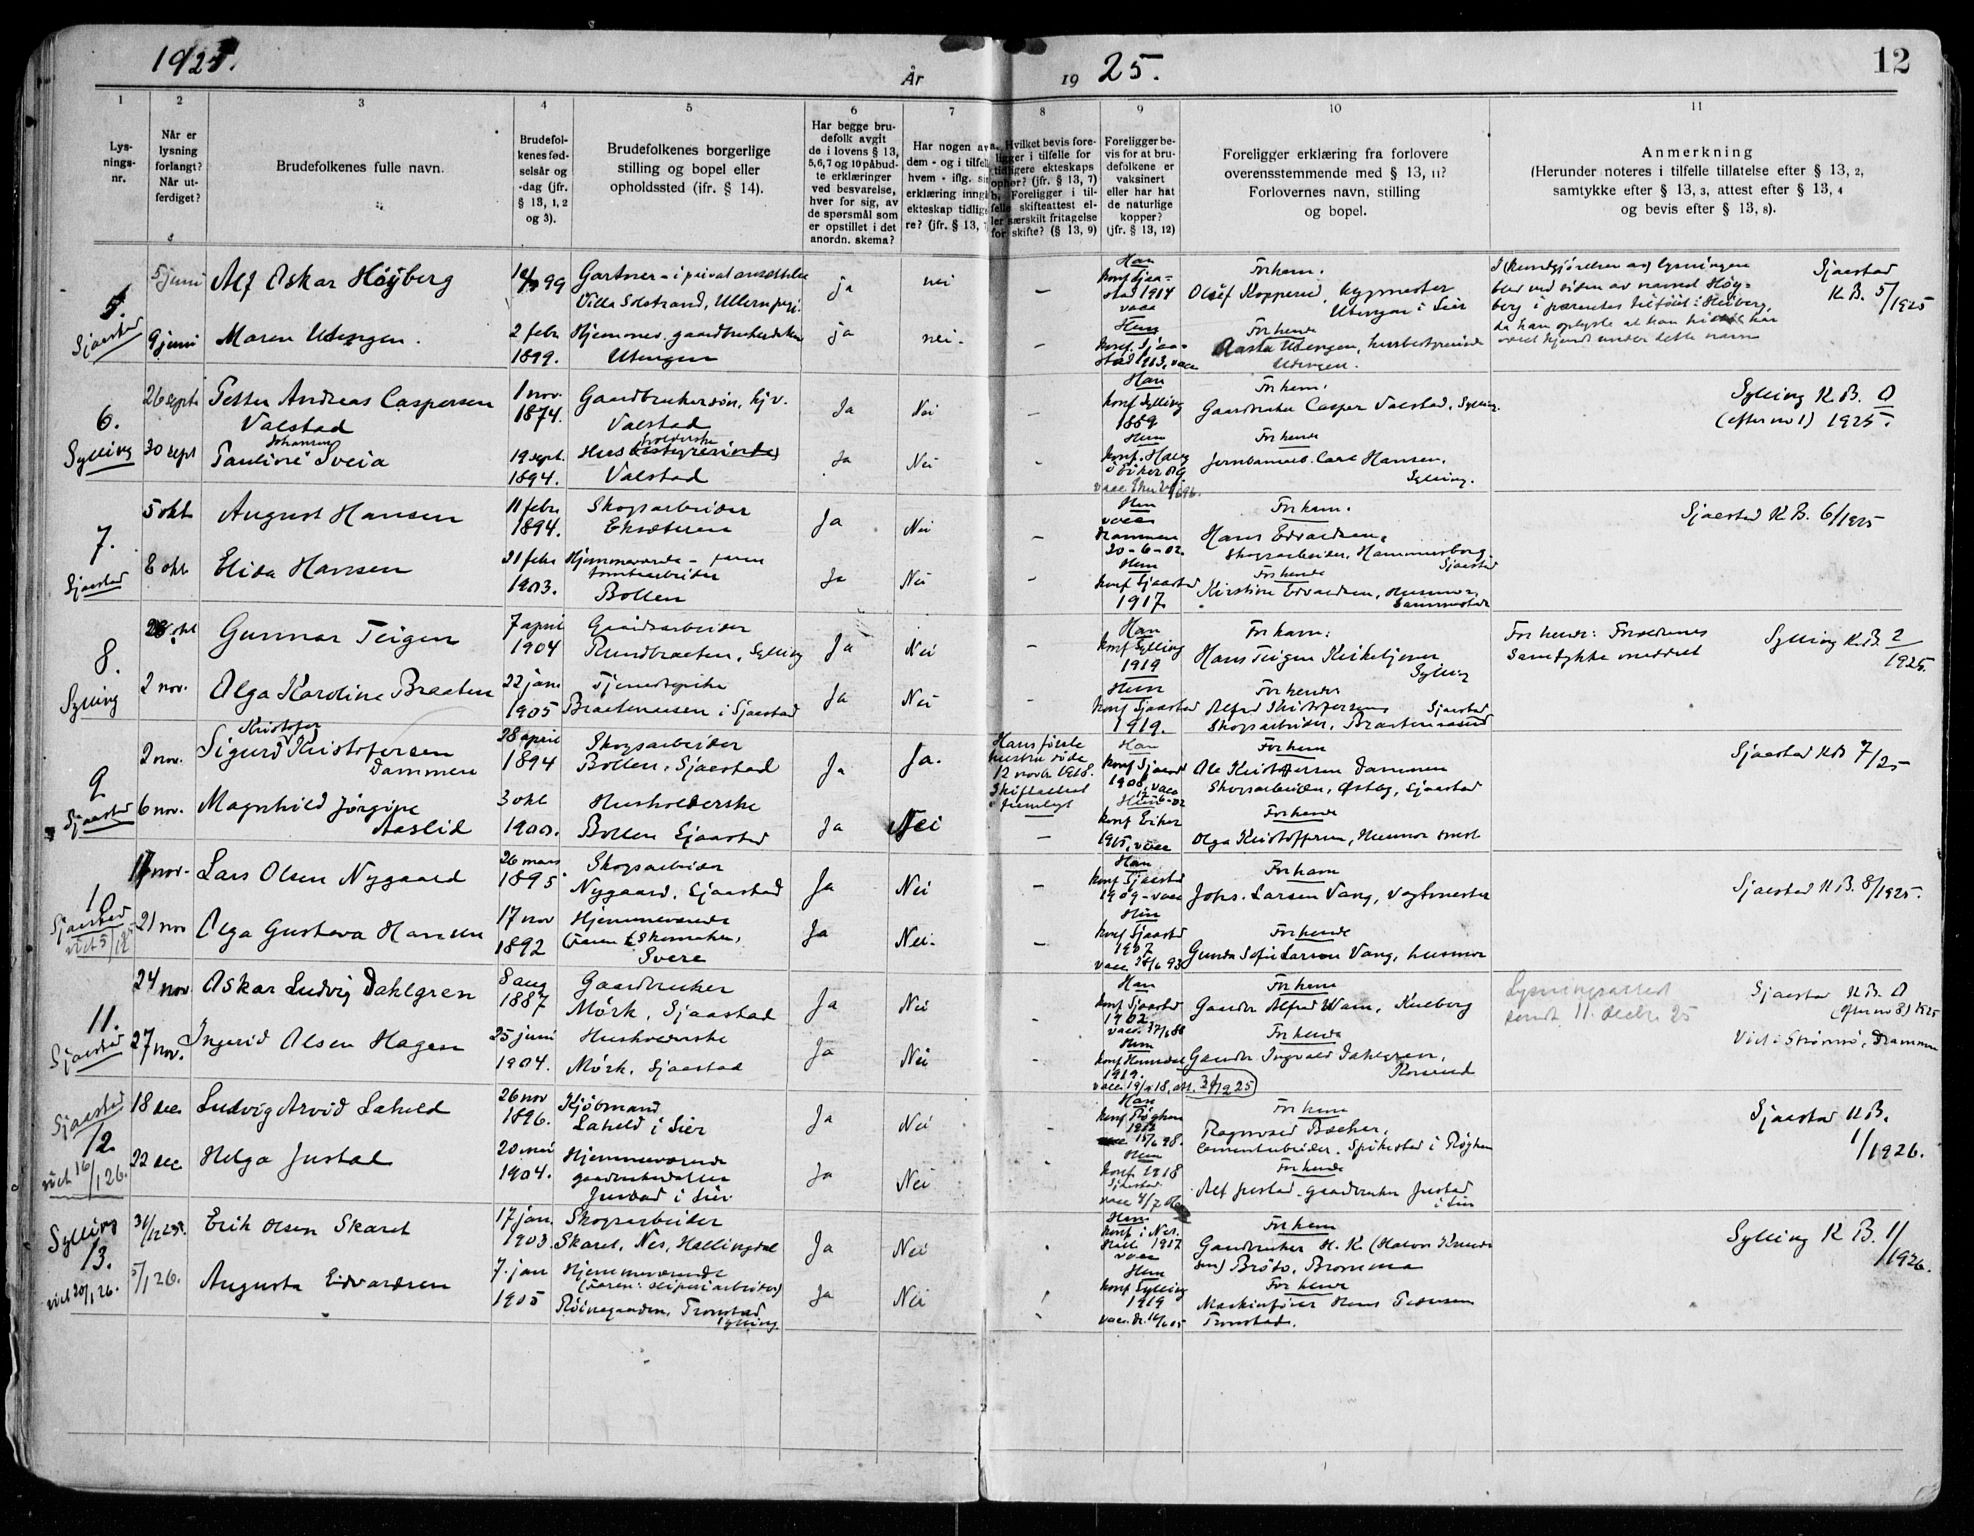 1925.
År
19 25.
12
1
2
3
4
5
6
7
8
9
10
11
Lys-
nings-
nr.
Når er
lysning
forlangt?
Når ut-
ferdiget?
Brudefolkenes fulle navn.
Brudefol-
kenes fød-
selsår og
-dag (jfr.
§ 13, 1, 2
og 3).
Brudefolkenes borgerlige
stilling og bopel eller
opholdssted (jfr. § 14).
Har begge bru-
defolk avgit
de i lovens § 13,
5,6,7 og 10 påbud-
te erklæringer
ved besvarelse,
hver for sig, av
de spørsmål som
er opstillet i det
anordn. skema?
Har nogen av
dem - og i tilfelle
hvem - iflg. sin
erklæring inngått
ekteskap tidlige-
re? (jfr. § 13,
a. Hvilket bevis fore-
ligger i tilfelle for
tidligere ekteskaps
ophør? (jfr. § 13, 7)
b. Foreligger i til-
felle skifteattest el-
ler særskilt fritagelse
for skifte? (§ 13, 9)
Foreligger be-
vis for at bru-
defolkene er
vaksinert
eller har hat
de naturlige
kopper?
(jfr. § 13, 12)
Foreligger erklæring fra forlovere
overensstemmende med § 13, 11?
Forlovernes navn, stilling
og bopel.
Anmerkning
(Herunder noteres i tilfelle tillatelse efter § 13, 2,
samtykke efter § 13, 3, attest efter § 13, 4
og bevis efter § 13, 8).
5.
Sjaastad
5 juni
Alf Oskar Höyberg
99
Gartner - i privat ansættelse
Villa Solstrand, Ullern
ja
nei
-
Han
konf Sjaa-
stad 1914
vacc
For ham.
Olaf Kopperud,
Utengen i Lier
lysningen
blev ved siden av navnet Höy-
berg i parentes tilföiet: Heiberg,
da han oplyste at han
under dette navn
Sjaastad
K B. 5/1925
9 juni
Maren Utengen.
2 febr
1899.
Hjemmev. gaardbrukerdatter
Utengen
ja
nei-
-
Hun
konf. Sjaa-
stad 1913, vacc
For hende
Utengen, husbestyrerinde
Utengen.
6.
Sylling
26 sept
Petter Andreas Caspersen
Valstad
1 nov.
1874.
Gaardbrukersön, hjv.
Valstad
Ja
Nei
-
Han
konf Sylling
1889
For ham.
Gaardbruker Casper Valstad, Sylling.
Sylling K B. 0
(efter no 1) 1925.
30 sept
Johansen
Pauline Sveia
19 sept.
1894.
Husholderske
Valstad
Ja
Nei
-
Hun
konf. Haug
i Eiker og
vacc
For hende
Jernbanearb. Carl Hansen,
Sylling.
7.
Sjaastad
5 okt
August Hansen
11 febr
1894.
Skogsarbeider
Eksæteren
Ja
Nei
-
Han
vacc
Drammen
20-6-02.
For ham.
Hans Edvardsen,
Skogsarbeider, Hammersborg
Sjaastad
Sjaastad K B. 6/1925
8 okt
Elida Hansen
21 febr
1903.
Hjemmeværende - faren
tomtearbeider
Bollen
Ja
Nei
-
Hun
konf Sjaastad
1917.
For hende
Kirstine Edvardsen, Husmor,
Sammested
8.
Sylling
28 okt
Gunnar Teigen
7 april
1904
Gaardsarbeider
Rundbraaten, Sylling
Ja
Nei
-
Han
konf Sylling
1919
For ham:
Hans Teigen Kirketjener
Sylling
For hende: Foreldrenes
Samtykke meddelt
Sylling K.B. 2/1925.
2 nov.
Olga Karoline Braaten
22 jan
1905
Tjenestepike
Braatenaasen i Sjaastad
Ja
Nei
-
Hun
konf Sjaastad
1919.
For hende
Alfred Kristofersen Sjaastad
Skogsarbeider, Braatenaasen
9
Sjaastad
2 nov.
Kristofer
Sigurd Kristofersen
Dammen
28 april
1894
Skogsarbeider
Bollen, Sjaastad
Ja
Ja.
Hans förste
hustru döde
12 novbr 1918.
Skifteattest
fremlagt
Han
konf Sjaastad
1908, vacc
For ham
Ole Kristoffersen Dammen
Skogsarbeider, Östby, Sjaastad
Sjaastad KB 7/25
6 nov.
Magnhild Jörgine
Aaslid
3 okt
1900.
Husholderske
Bollen Sjaastad
Ja
Nei
-
Hun
konf Eiker
1915, vacc
For hende
Olga Kristoffersen, Husmor smst
10
Sjaastad
viet 5/12 25
17 nov.
Lars Olsen Nygaard
26 mars
1895
Skogsarbeider
Nygaard, Sjaastad
Ja
Nei
-
Han
konf Sjaastad
1909 - vacc
For ham
Johs. Larsen Vang, Vogtmester
Sjaastad K B. 8/1925.
21 nov
Olga Gustava Hansen
17 nov
1892
Hjemmeværende
(faren Skomaker,
Svere
Ja
Nei-
-
Hun
konf Sjaastad
1907
vacc 93
For hende
Gunda Sofie Larsen Vang, husmor
11.
Sjaastad
24 nov
Oskar Ludvig Dahlgren
8 aug
1887
Gaardbruker
Mörk, Sjaastad
Ja
Nei
-
Han
konf Sjaastad
1902.
vacc. 17/6 88
For ham
Gaardbr Alfred Wam,
Lysningsattest
sendt 11. decbr 25
Sjaastad K B. 0
(efter no 8) 1925
Viet i Strömsö, Drammen
27 nov.
Ingerid Olsen Hagen
25 juni
1904.
Husholderske
Mörk, Sjaastad
Ja
Nei
-
Hun
konf Hemsedal
1919.
vacc 19/9 18, att.
For hende
Gaardbr Ingvald Dahlgren,
12.
Sjaastad
viet 16/1 26.
18 dec
Ludvig Arvid Laheld
26 nov
1896.
Kjöbmand
Laheld i Lier
Ja
Nei
-
Han
konf Röyken
1912
15/6 98.
For ham
Ragnvald Ascher,
Cementarbeider. Spikestad i Röyken
Sjaastad K B.
1/1926.
22 dec
Helga Justad
20 mai
1904.
Hjemmeværende
gaardbrukerdatter
Justad i Lier
Ja
Nei
Hun
konf 1918
Sjaastad
vacc 4/7
For hende
Alf Justad - gaardbruker Justad
i Lier
Sylling
13.
viet 20/1 26.
31/12 25.
Erik Olsen Skaret
17 jan.
1903.
Skogsarbeider
Skaret, Nes, Hallingdal
Ja
Nei
Han
konf i Nes.
Hall. 1917
vacc
For ham
Gaardbruker H. K (Halvor Knud-
sen) Bröto, Bromma
Sylling K B. 1/1926.
5/1 26.
Augusta Edvardsen
7. jan
1905
Hjemmeværende
(faren: sliperiarbeider)
Tronstad
Sylling.
Ja
Nei
Hun
konf Sylling
1919
vacc.
For hende
Maskinfører Hans Pedersen
Tronstad.